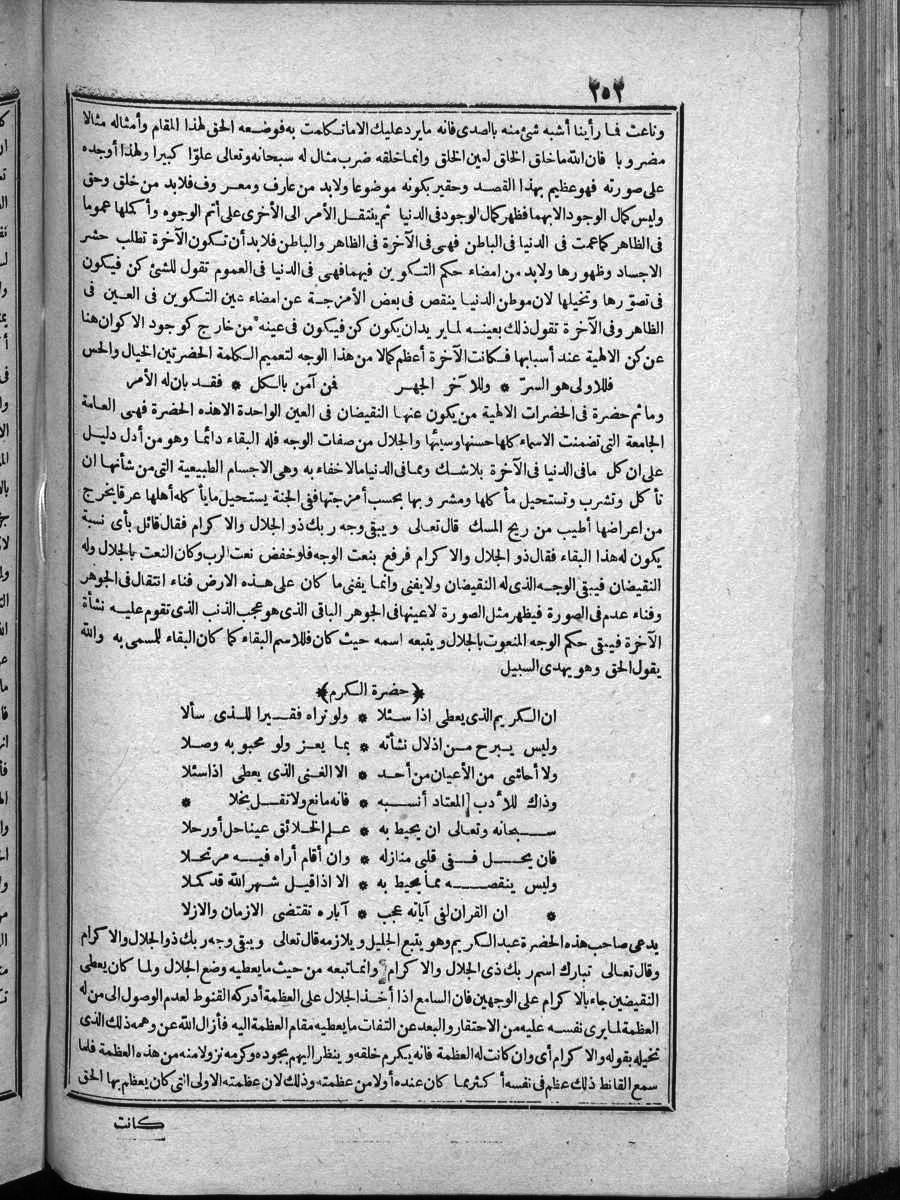 ٢٥٢
وناعت فما رأينا أشبه شئ منه بالصدى فانه ما يرد عليك الا ما تكلمت به فوضعه الحق لهذا المقام وأمثاله مثالا
مضروبا فان الله ما خلق الخلق لعين الخلق وانما خلقه ضرب مثال له سبحانه وتعالى علوّا كبيرا ولهذا أوجده
على صورته فهو عظيم بهذا القصد وحقير بكونه موضوعا ولا بد من عارف ومعروف فلا بد من خلق وحق
وليس كمال الوجود الا بهما فظهر كمال الوجود فى الدنيا ثم ينتقل الأمر الى الأخرى على أتم الوجوه وأكملها عموما
فى الظاهر كما عمت فى الدنيا فى الباطن فهى فى الآخرة فى الظاهر والباطن فلا بد أن تكون الآخرة تطلب حشر
الاجساد وظهورها ولا بد من امضاء حكم التكوين فيهما فهى فى الدنيا فى العموم تقول للشئ كن فيكون
فى تصوّرها وتخيلها لان موطن الدنيا ينقص فى بعض الأمزجة عن امضاء عين التكوين فى العين فى
الظاهر وفى الآخرة تقول ذلك بعينه لما يريد ان يكون كن فيكون فى عينه من خارج كوجود الاكوان هنا
عن كن الالهية عند أسبابها فكانت الآخرة أعظم كمالا من هذا الوجه لتعميم الكلمة الحضرتين الخيال والحس
فللاولى هو السرّ * وللآخر الجهر فمن آمن بالكل * فقد بان له الأمر
وما ثم حضرة فى الحضرات الالهية من يكون عنها النقيضان فى العين الواحدة الا هذه الحضرة فهى العامة
الجامعة التى تضمنت الاسماء كلها حسنها وسيئها والجلال من صفات الوجه فله البقاء دائما وهو من أدل دليل
على ان كل ما فى الدنيا فى الآخرة بلا شك ومما فى الدنيا ما لا خفاء به وهى الاجسام الطبيعية التى من شأنها ان
تأكل وتشرب وتستحيل مأكلها ومشروبها بحسب أمزجتها ففى الجنة يستحيل ما يأكله أهلها عرقا يخرج
من اعراضها أطيب من ريح المسك قال تعالى ويبقى وجه ربك ذو الجلال والاكرام فقال قائل بأى نسبة
يكون له هذا البقاء فقال ذو الجلال والاكرام فرفع بنعت الوجه فلو خفض نعت الرب وكان النعت بالجلال وله
النقيضان فيبقى الوجه الذى له النقيضان ولا يفنى وانما يفنى ما كان على هذه الارض فناء انتقال فى الجوهر
وفناء عدم فى الصورة فيظهر مثل الصورة لا عينها فى الجوهر الباقى الذى هو عجب الذنب الذى تقوم عليه نشأة
الآخرة فيبقى حكم الوجه المنعوت بالجلال ويتبعه اسمه حيث كان فللاسم البقاء كما كان البقاء للمسمى به والله
يقول الحق وهو يهدى السبيل
﴿حضرة الكرم﴾
ان الكريم الذى يعطى اذا سئلا * ولو تراه فقيرا للذى سألا
وليس يبرح من اذلال نشأته * بما يعز ولو محبوبه وصلا
ولا أحاشى من الأعيان من أحد * الا الغنى الذى يعطى اذا سئلا
وذاك للأدب المعتاد أنسبه * فانه مانع ولا تقل بخلا *
سبحانه وتعالى ان يحيط به * علم الخلائق عينا حل أو رحلا
فان يحل ففى قلبى منازله * وان أقام أراه فيه مرتحلا
وليس ينقصه مما يحيط به * الا اذا قيل شهر الله قد كملا
* ان القران لفى آياته عجب * آباره تقتضى الازمان والازلا
يدعى صاحب هذه الحضرة عبد الكريم وهو يتبع الجليل ويلازمه قال تعالى ويبقى وجه ربك ذو الجلال والاكرام
وقال تعالى تبارك اسم ربك ذى الجلال والاكرام وانما تبعه من حيث ما يعطيه وضع الجلال ولما كان يعطى
النقيضين جاء بالاكرام على الوجهين فان السامع اذا أخذ الجلال على العظمة أدركه القنوط لعدم الوصول الى من له
العظمة لما يرى نفسه عليه من الاحتقار والبعد عن التفات ما يعطيه مقام العظمة اليه فأزال الله عن وهمه ذلك الذى
تخيله بقوله والاكرام أى وان كانت له العظمة فانه يكرم خلقه وينظر اليهم بجوده وكرمه نزولا منه من هذه العظمة فلما
سمع القانط ذلك عظم فى نفسه أكثر مما كان عنده أولا من عظمته وذلك لان عظمته الاولى التى كان يعظم بها الحق
كانت